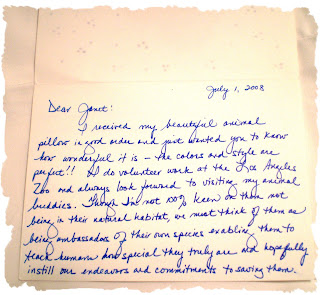 July 1, 2008
Dear Janet:
I received my beautiful animal
pillow in good order and just wanted you to know
how wonderful it is – the colors and style are
perfect!! I do volunteer work at the Los Angeles
Zoo and always look forward to visiting my animal
buddies. Though I'm not 100% keen on them not
being in their natural habitat, we must think of them as
being ambassadors of their own species enabling them to
teach humans how special they truly are and hopefully
instill our endeavors and commitments to saving them.